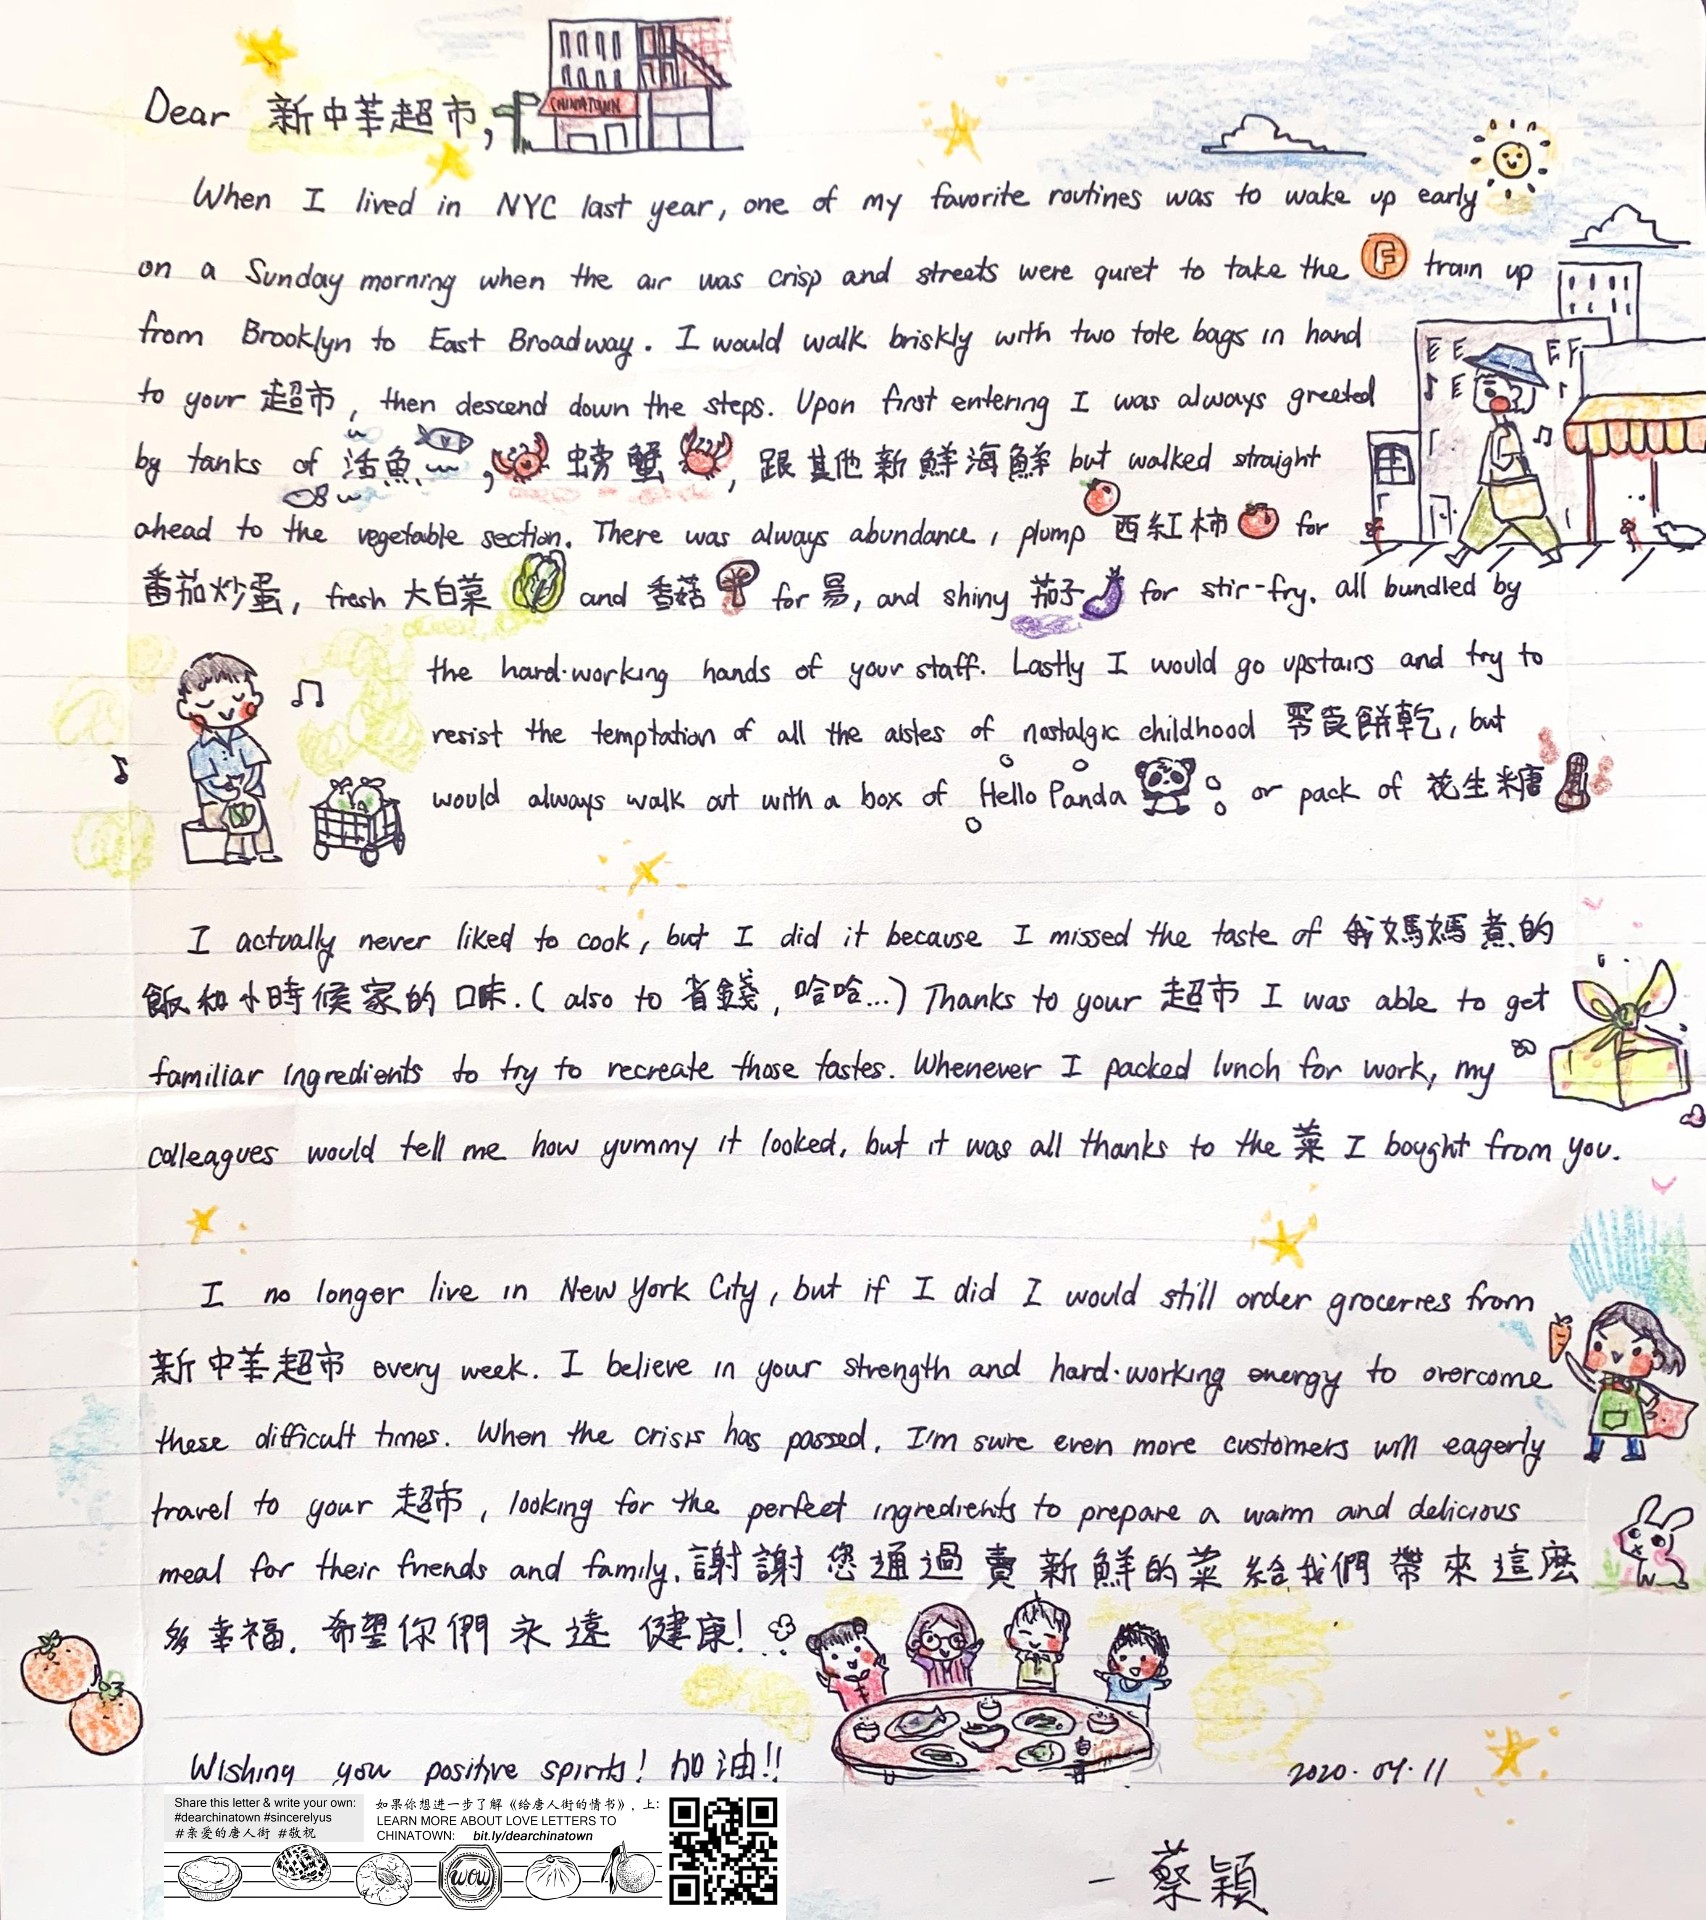 Dear 新中華超市,
CHINATOWN
When I lived in NYC last year, one of my favorite routines was to wake up early
on a Sunday morning when the air was crisp and streets were quiet to take the F train up
from Brooklyn to East Broadway. I would walk briskly with two tote bags in hand
to your 超市, then descend down the steps. Upon first entering I was always greeted
by tanks of 活魚, 螃蟹, 跟其他新鮮海鮮 but walked straight
ahead to the vegetable section. There was always abundance, plump 西紅柿 for
番茄炒蛋, fresh 大白菜 and 香菇 for 湯, and shiny 茄子 for stir-fry. all bundled by
the hard-working hands of your staff. Lastly I would go upstairs and try to
resist the temptation of all the aisles of nostalgic childhood 零食餅乾, but
would always walk out with a box of Hello Panda or pack of 花生糖
I actually never liked to cook, but I did it because I missed the taste of 我媽媽煮的
飯和小時候家的口味. (also to 省錢, 哈哈...) Thanks to your 超市 I was able to get
familiar ingredients to try to recreate those tastes. Whenever I packed lunch for work, my
colleagues would tell me how yummy it looked, but it was all thanks to the 菜 I bought from you.
I no longer live in New York City, but if I did I would still order groceries from
新中華超市 every week. I believe in your strength and hard-working energy to overcome
these difficult times. When the crisis has passed, I'm sure even more customers will eagerly
travel to your 超市, looking for the perfect ingredients to prepare a warm and delicious
meal for their friends and family. 謝謝您通過賣新鮮的菜給我們帶來這麼
多幸福. 希望你們永遠健康!
Wishing you positive spirits! 加油!!
2020.04.11
Share this letter & write your own:
#dearchinatown #sincerelyus
#亲爱的唐人街 #敬祝
如果你想进一步了解《给唐人街的情书》, 上:
LEARN MORE ABOUT LOVE LETTERS TO
CHINATOWN: bit.ly/dearchinatown
WOW
- 蔡穎